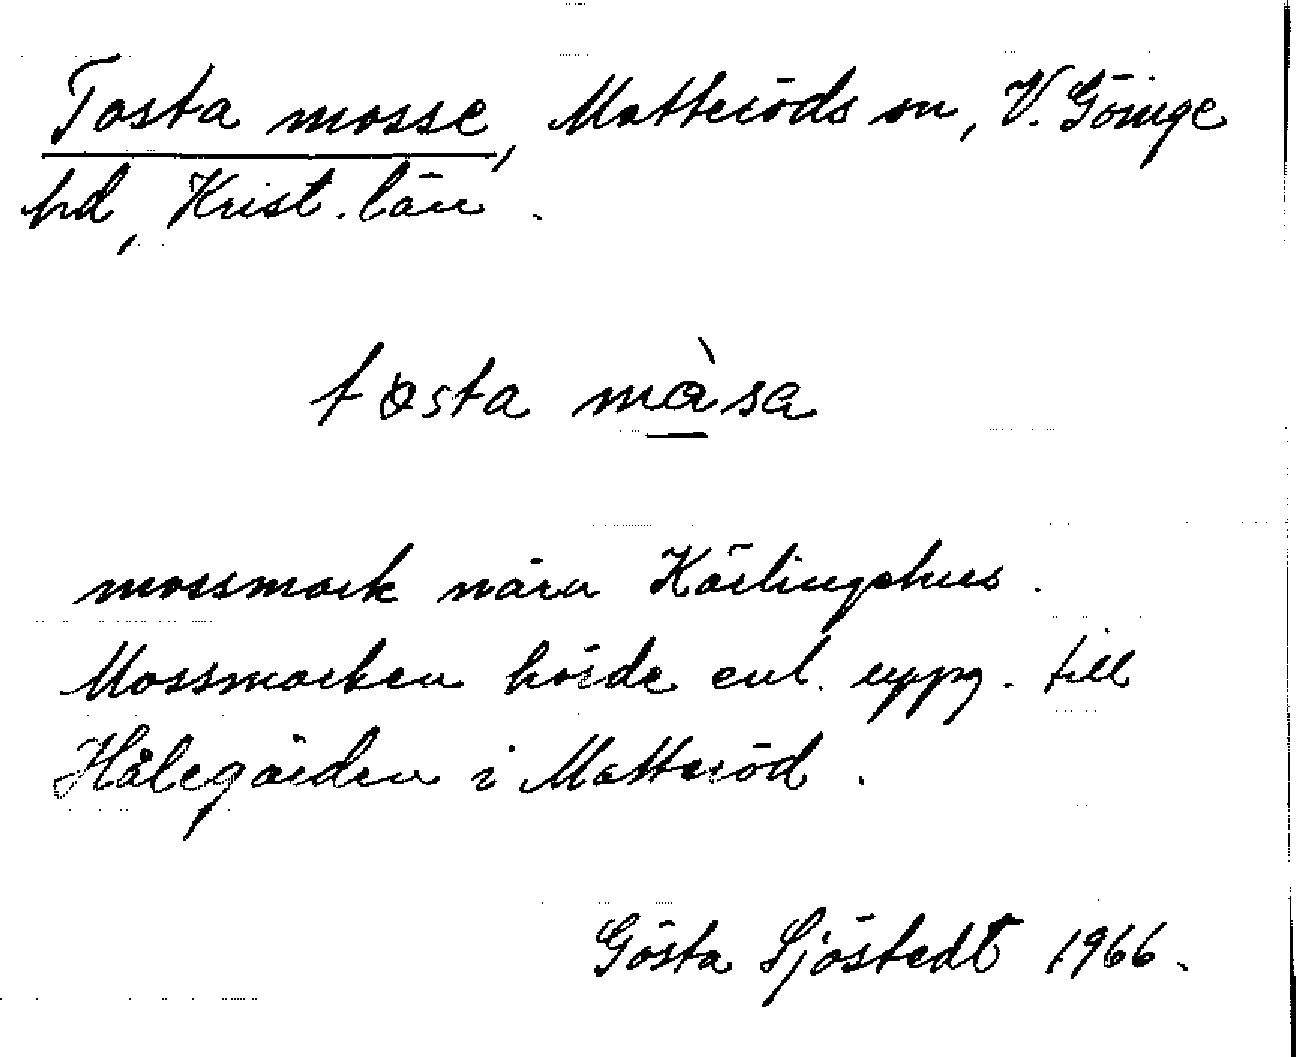 Tosta mosse, Matteröds sn, V. Göinge
hd, Krist. län.
tòsta mɑ̀sa
mossmark nära Kärlingehus.
Mossmarken hörde enl. uppg. till
Hålegården i Matteröd.
Gösta Sjöstedt 1966.